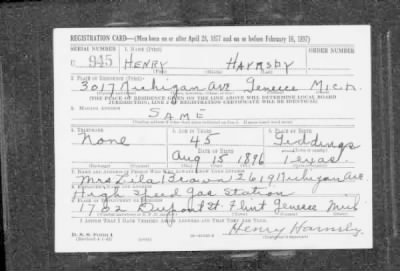 REGISTRATION CARD—(Men born on or after April 28, 1877 and on or before February 16, 1897)
SERIAL NUMBER 1. NAME (Print) ORDER NUMBER
U 945 HENRY HARMSBY
(First) (Middle) (Last)
2. PLACE OF RESIDENCE (Print)
3017 Michigan Ave Genesee Mich
(THE PLACE OF RESIDENCE GIVEN ON THE LINE ABOVE WILL DETERMINE LOCAL BOARD
JURISDICTION; LINE 2 OF REGISTRATION CERTIFICATE WILL BE IDENTICAL)
3. MAILING ADDRESS
SAME
4. TELEPHONE 5. AGE IN YEARS 6. PLACE OF BIRTH
None 45 Giddings
DATE OF BIRTH
Aug 15 1896 Texas
7. NAME AND ADDRESS OF PERSON WHO WILL ALWAYS KNOW YOUR ADDRESS
Mrs Zula Brown 2619 Michigan Ave
8. EMPLOYER'S NAME AND ADDRESS
High Speed Gas Station
9. PLACE OF EMPLOYMENT OR BUSINESS
1702 Dupont St Flint Genesee Mich
I AFFIRM THAT I HAVE VERIFIED ABOVE ANSWERS AND THAT THEY ARE TRUE.
D. S. S. Form 1
Henry Harmsby